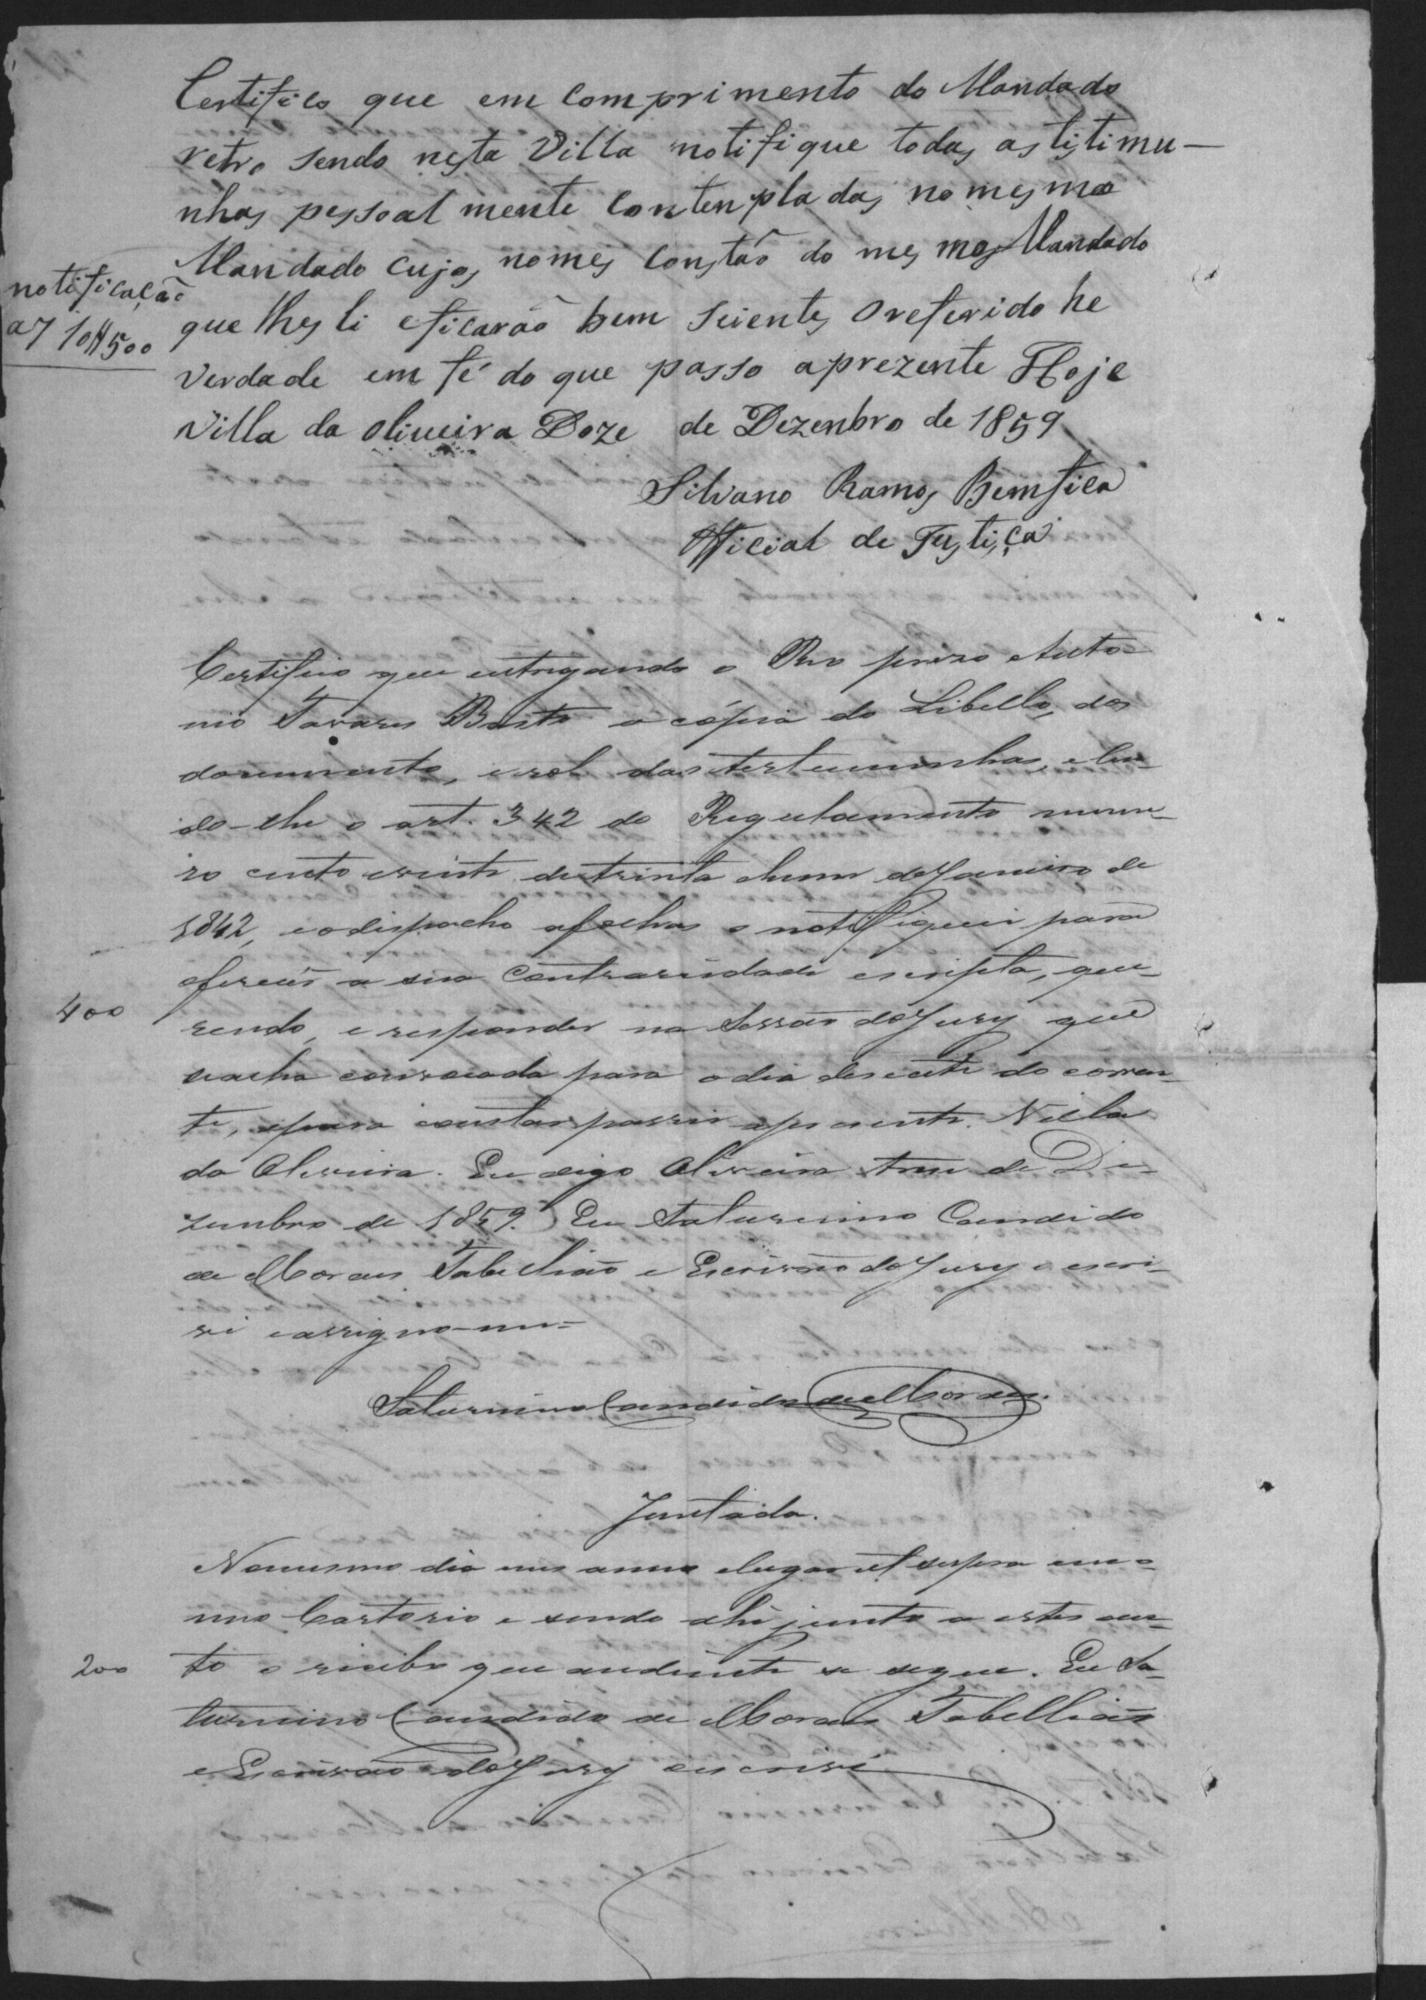 Certifico que em comprimento do Mandado
retro sendo nesta Villa notifique todas as tistimu-
nhas pessoal mente contenpladas no mesmo
Mandado cujos nomes constão do mesmos Mandado
notificação
a 7 10$500
que lhes li eficarão bem scientes o referido he
verdade em fé do que passo aprezente Hoje
Villa da Oliveira Doze de Dezenbro de 1859
Silvano Ramos Bemfica
Official de Justiça
Certifico que entregando o Reo prezo Anto-
nio Tavares Basto a cópia do Libello, dos
documento, e rol das testemunhas, e len-
do-lhe o art. 342 do Regulamento nume-
ro cento e vinte de trinta e hum de Janeiro de
1842, e o dispacho afolhas o notifiquei para
oferecer a sua Contrariedade escripta, que-
400
rendo, e responder na Sessão do Jury que
se acha convocada para o dia desecete do corren-
te, e para constar passei a presente. Villa
da Oliveira. Eu digo Oliveira treze de De-
zembro de 1859. Eu Saturnino Candido
de Moraes Tabellião e Escrivão do Jury o escri-
vi e assigno-me=
Saturnino Candido de Moraes.
Juntada.
No mesmo dia mes anno e lugar ut supra em o
meo Cartorio e sendo ahi junto a estes au-
200
to o recibo que andiente se segue. Eu Sa-
turnino Candido de Moraes Tabellião
e Escrivão do Jury escrivi